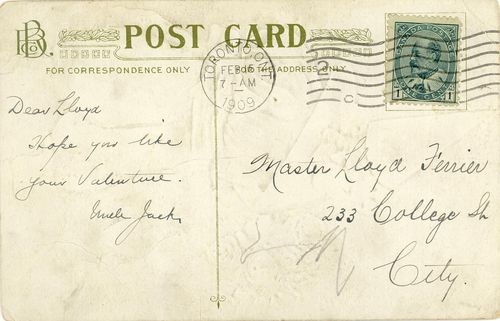 POST CARD
FOR CORRESPONDENCE ONLY
FOR ADDRESS ONLY
TORONTO, ONT.
FEB
7-AM
1909
CANADA POSTAGE
1 ONE CENT 1
Dear Lloyd
Hope you like
your Valentine.
Uncle Jack
Master Lloyd Ferrier
233 College St
City.